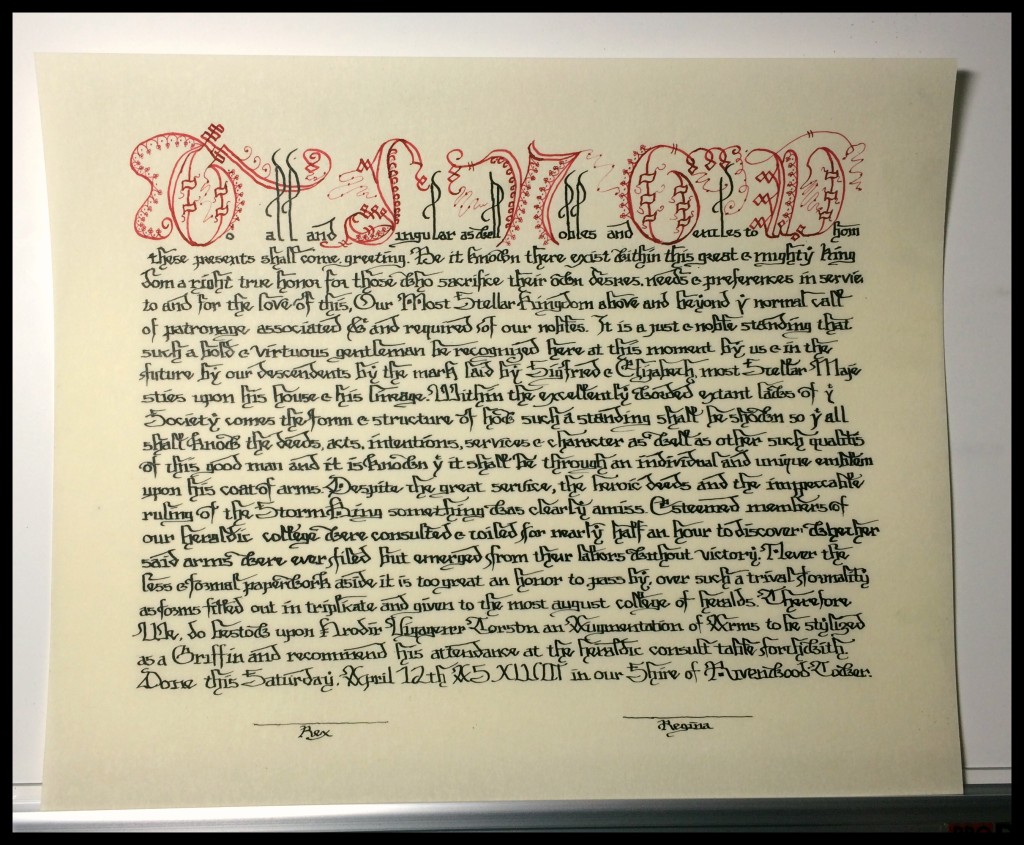 To all and Singular as well Nobles and Gentiles to Whom
these presents shall come, greeting. Be it known there exist within this great & mighty King
dom a right true honor for those who sacrifice their own desires, needs & preferences in servic
to and for the love of this, Our Most Stellar Kingdom above and beyond ẏ normal call
of patronage associated & and required of our nobles. It is a just & noble standing that
such a bold & virtuous gentleman be recognized here at this moment by us & in the
future by our descendents by the mark laid by Sigfried & Elizabeth, most Stellar Maje
sties upon his house & his lineage. Within the excellently worded extant laws of ẏ
Society comes the form & structure of how such a standing shall be shown so ẏ all
shall know the deeds, acts, intentions, services & character as well as other such qualitis
of this good man and it is known ẏ it shall be through an individual and unique emblem
upon his coat of arms. Despite the great service, the heroic deeds and the impeccable
ruling of the Storm King something was clearly amiss. Esteemed members of
our heraldic college were consulted & toiled for nearly half an hour to discover whether
said arms were ever filed but emerged from their labors without victory. Never the
less & formal paperwork aside it is too great an honor to pass by, over such a trival formality
as forms filled out in triplicate and given to the most august college of heralds. Therefore
We, do bestow upon Torstn an Augmentation of Arms to be stylized
as a Griffin and recommend his attendance at the heraldic consult table forthwith.
Done this Saturday, April 12th AS XLVIII in our Shire of Rivenwood Tower.
Rex
Regina